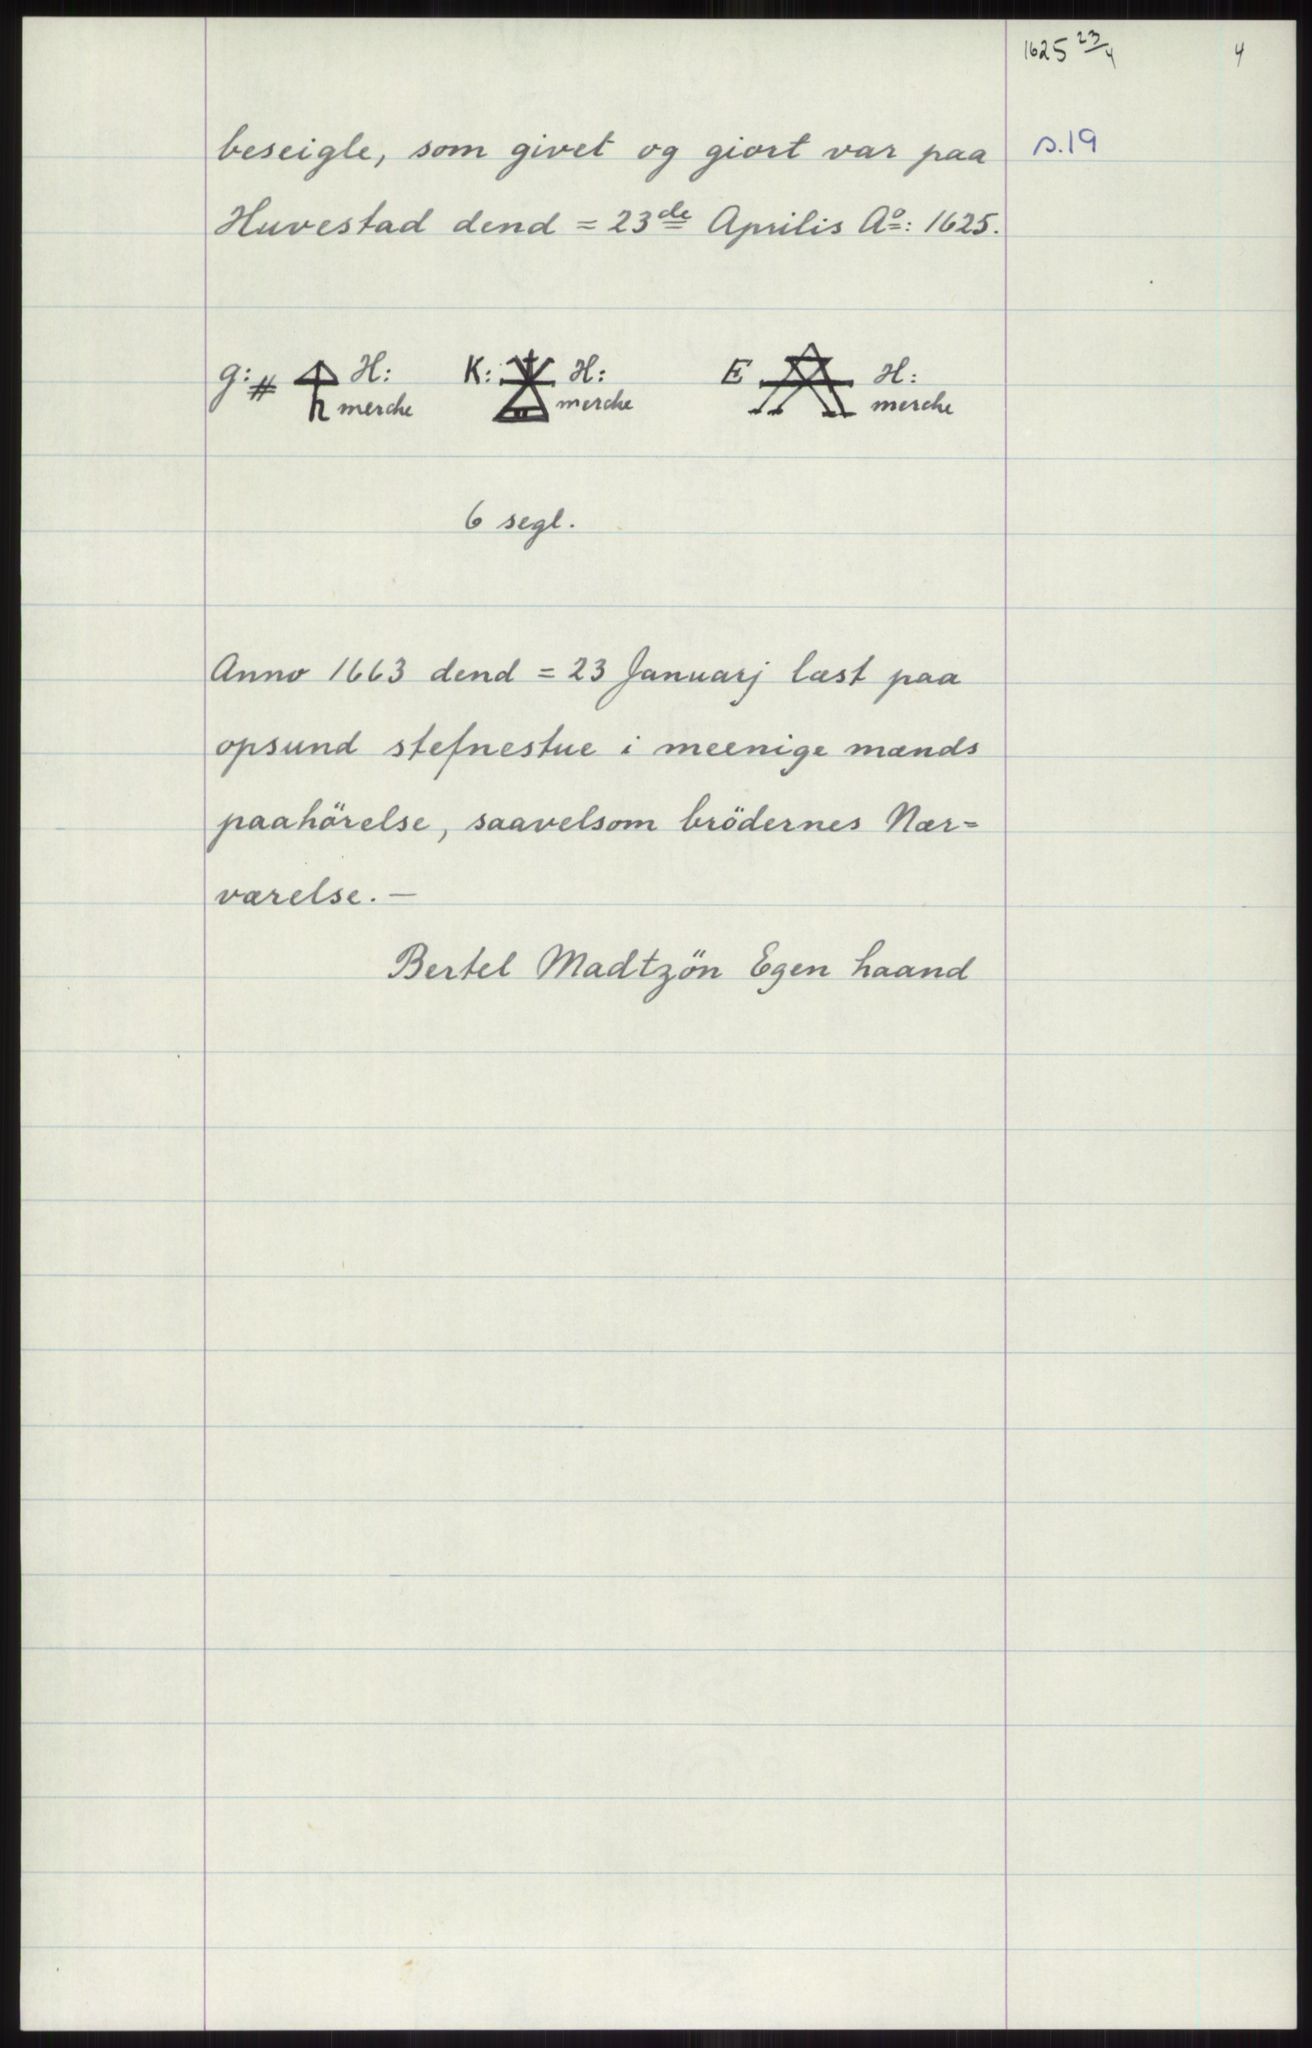 1625 23/4 4
beseigle, som givet og giort var paa s.19
Huvestad dend = 23de Aprilis Ao: 1625.
G: # H: K: H: E H:
merche merche merche
6 segl.
Anno 1663 dend = 23 Januarj læst paa
opsund stefnestue i meenige mænds
paahörelse, saavelsom brödernes Nær=
værelse. —
Bertel Madtzön Egen haand